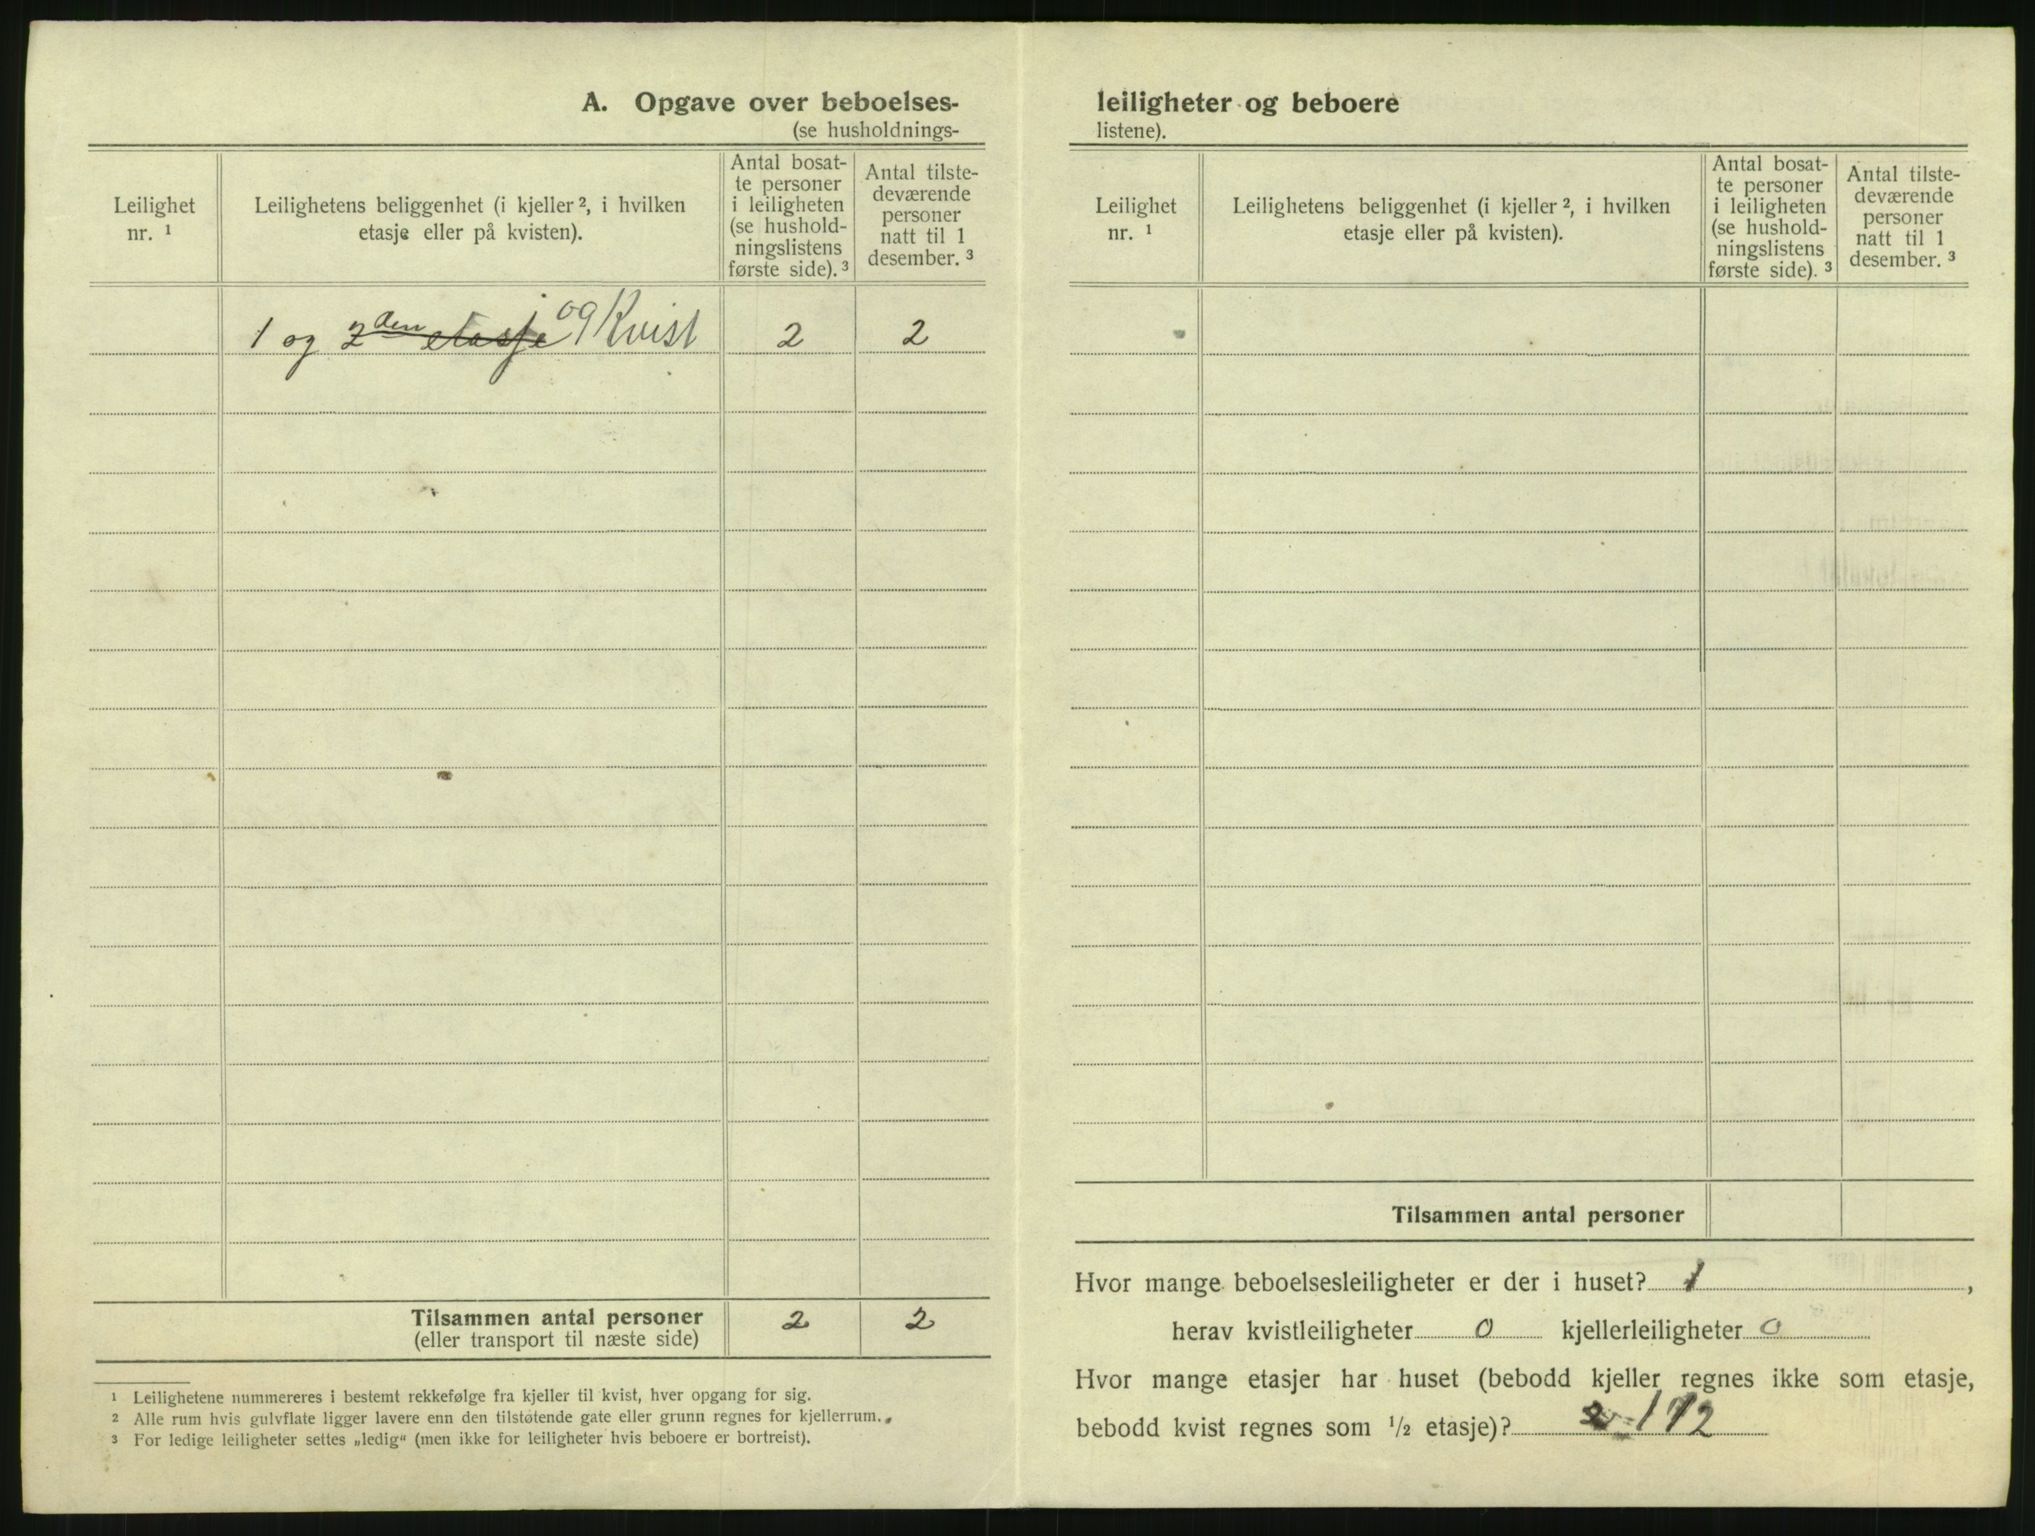 A. Opgave over beboelses-
(se husholdnings-
Leilighet
nr. ¹
Leilighetens beliggenhet (i kjeller ², i hvilken
etasje eller på kvisten).
Antal bosat-
te personer
i leiligheten
(se hushold-
ningslistens
første side). ³
Antal tilste-
deværende
personer
natt til 1
desember. ³
1 og 2den etasje og Kvist 2 2
Tilsammen antal personer 2 2
(eller transport til næste side)
¹ Leilighetene nummereres i bestemt rekkefølge fra kjeller til kvist, hver opgang for sig.
² Alle rum hvis gulvflate ligger lavere enn den tilstøtende gate eller grunn regnes for kjellerrum.
³ For ledige leiligheter settes „ledig“ (men ikke for leiligheter hvis beboere er bortreist).
leiligheter og beboere
listene).
Leilighet
nr. ¹
Leilighetens beliggenhet (i kjeller ², i hvilken
etasje eller på kvisten).
Antal bosat-
te personer
i leiligheten
(se hushold-
ningslistens
første side). ³
Antal tilste-
deværende
personer
natt til 1
desember. ³
Tilsammen antal personer
Hvor mange beboelsesleiligheter er der i huset? 1,
herav kvistleiligheter 0 kjellerleiligheter 0
Hvor mange etasjer har huset (bebodd kjeller regnes ikke som etasje,
bebodd kvist regnes som ½ etasje)? 2 1 1/2